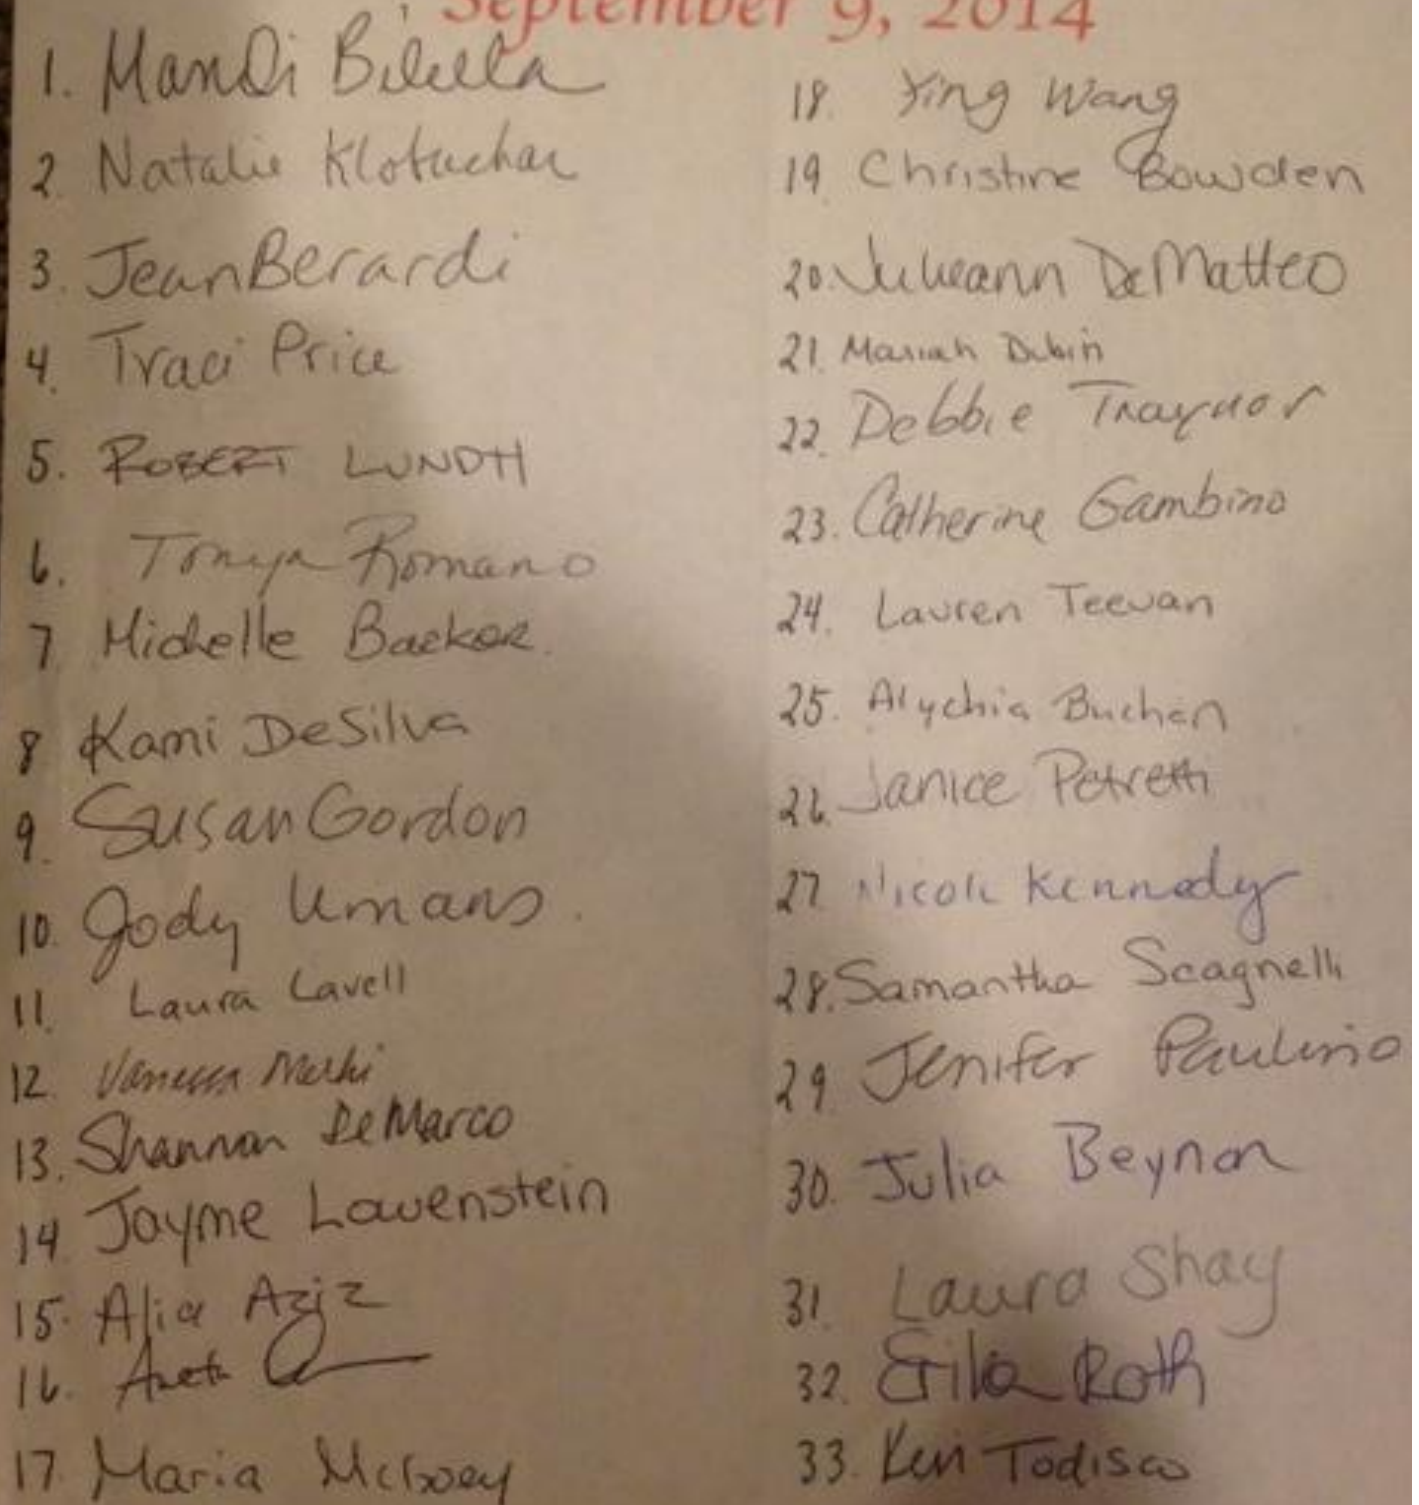 September 9, 2014
1. Mandi Bilella
2. Natalie Klotuchar
3. Jean Berardi
4. Traci Price
5. ROBERT LUNDTH
6. Tonya Romano
7 Michelle Backer.
8 Kami DeSilva
9. Susan Gordon
10. Jody Umans.
11. Laura Lavell
12. Vanessa
13. Shannon DeMarco
14 Jayme Lowenstein
15. Alia Aziz
16.
17. Maria McGoey
18. Ying Wang
19. Christine Bowden
20. Julieann DeMatteo
21. Mariah Dubin
22. Debbie Traynor
23. Catherine Gambino
24. Lauren Teevan
25. Alychia Buchan
26. Janice Petretti
27 Nicole Kennedy
28. Samantha Scagnelli
29 Jenifer Paulino
30. Julia Beynon
31. Laura Shay
32. Erika Roth
33. Ken Todisco